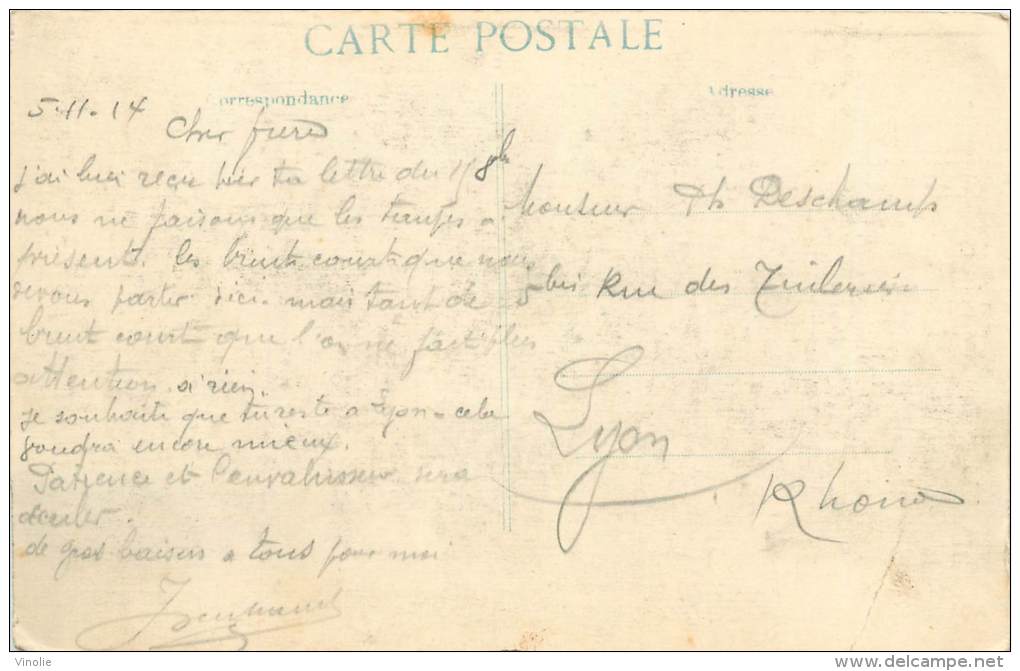 CARTE POSTALE
Correspondance
Adresse
5.11.14
Cher frère
j'ai bien reçu hier ta lettre du
nous ne faisons que les temps a
présent. les bruits court que nous
devons partir d'ici. mais tant de
bruit court que l'on ne fait plus
attention a rien.
je souhaite que tu reste a Lyon. cela
voudra encore mieux.
Patience et l'envahisseur sera
de gros baisers a tous pour moi
Monsieur Ph Deschamps
5 bis Rue des Tuileries
Lyon
Rhone
Vinolie
delcampe.net